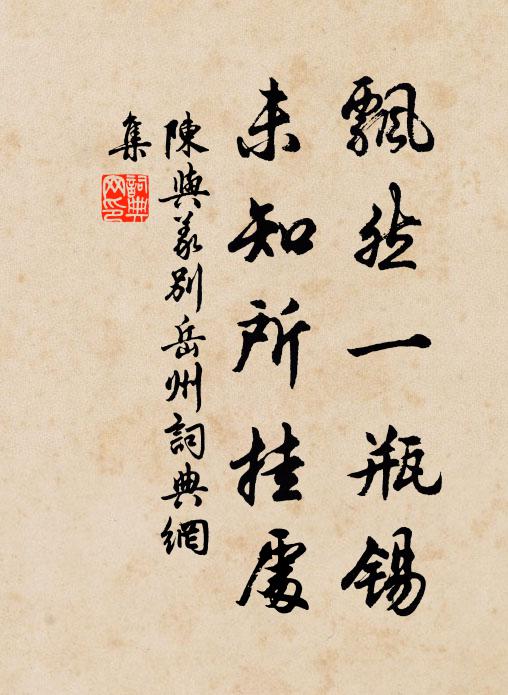 飄然一瓶錫
未知所挂處
陳與義別岳州詞典網
集
詞典
网印